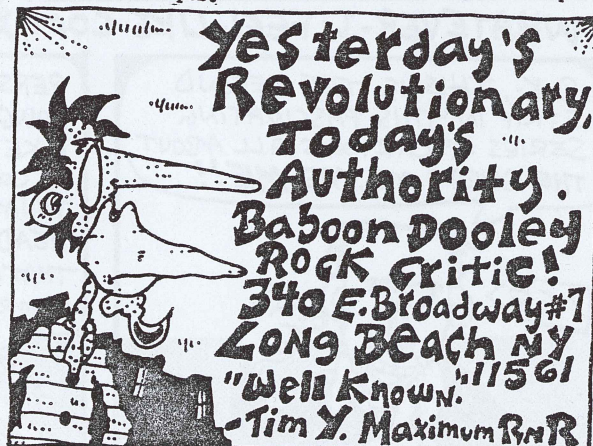 Yesterday's
Revolutionary,
Today's
Authority.
Baboon Dooley
Rock Critic!
340 E. Broadway #7
Long Beach NY
11561
"Well Known."
-Tim Y. Maximum RNR